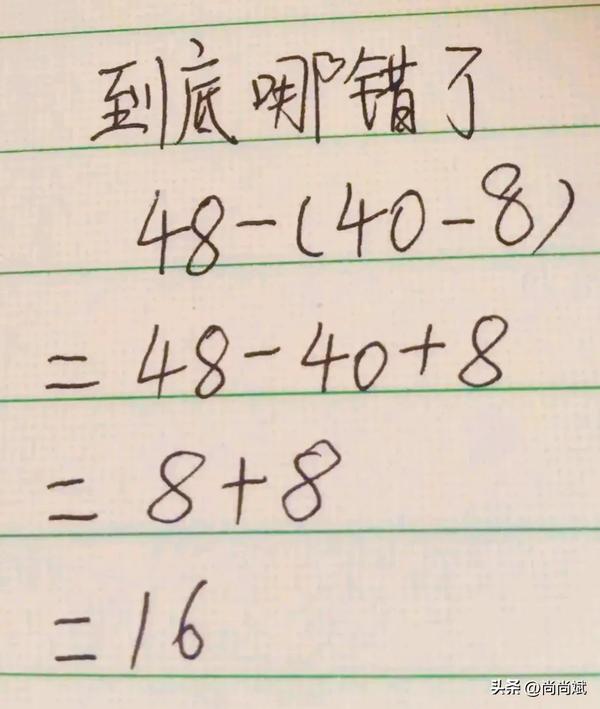 到底哪错了
48-(40-8)
=48-40+8
=8+8
=16
头条 @尚尚斌